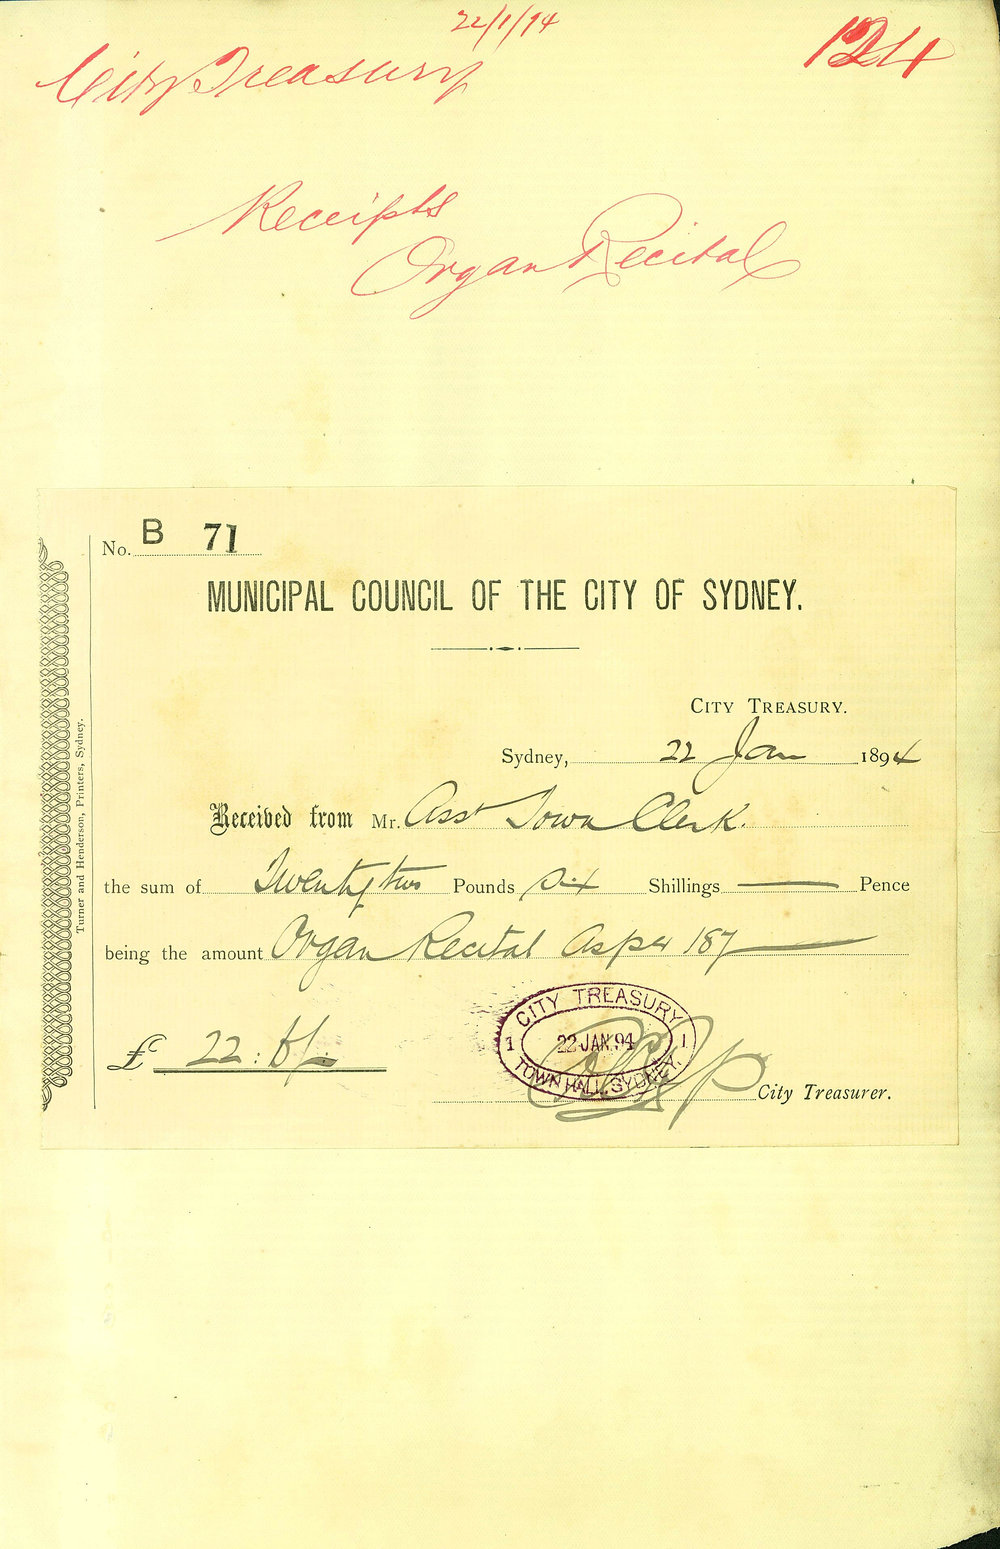 22/1/94
124
City Treasury
Receipts
Organ Recital
No. B 71
MUNICIPAL COUNCIL OF THE CITY OF SYDNEY.
CITY TREASURY.
Sydney, 22 Jan 1894
Received from Mr. Asst Town Clerk.
the sum of Twenty two Pounds Six Shillings — Pence
being the amount Organ Recital As per 187
£ 22 : 6/-
CITY TREASURY
1 22 JAN. 94 1
TOWN HALL, SYDNEY.
City Treasurer.
Turner and Henderson, Printers, Sydney.